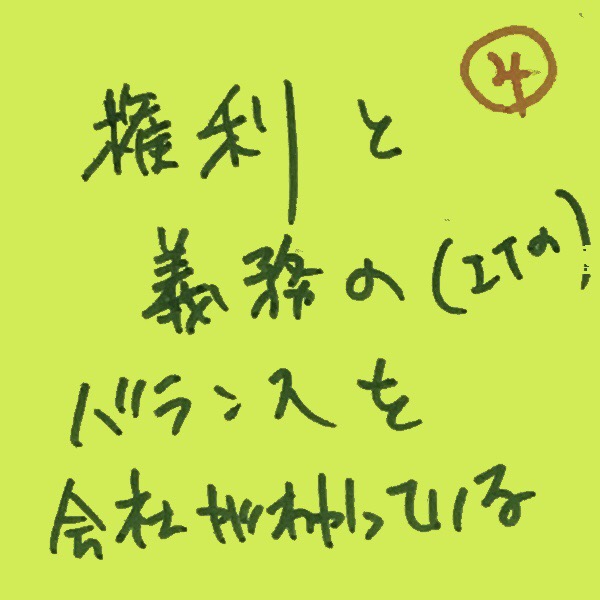 ④
権利と
義務の(ITの)
バランスを
会社がわかっている